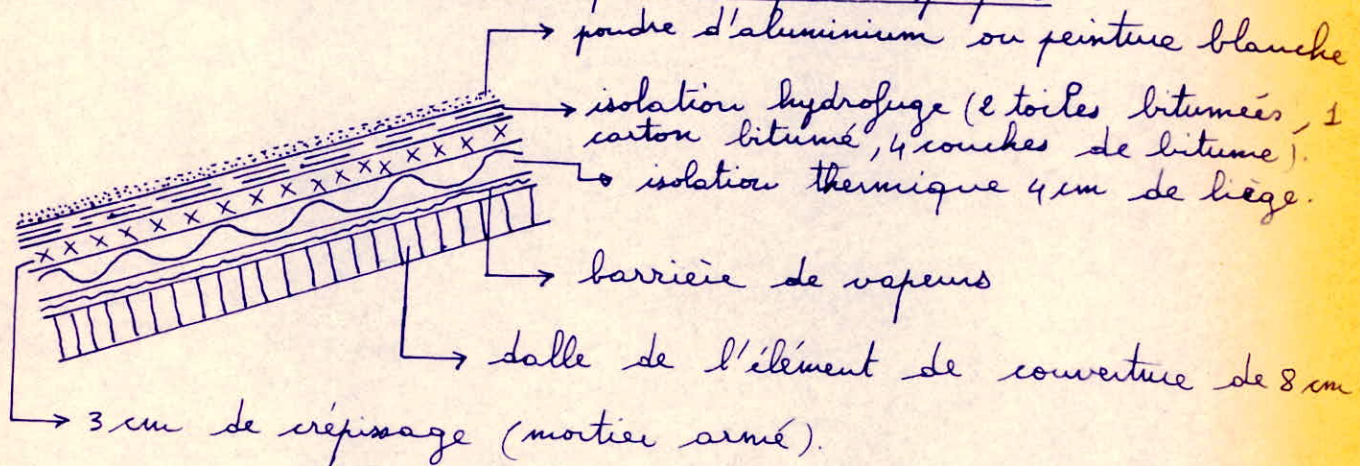 poudre d'aluminium ou peinture blanche
isolation hydrofuge (2 toiles bitumées, 1
carton bitumé, 4 couches de bitume).
isolation thermique 4 cm de liège.
barrière de vapeurs
dalle de l'élément de couverture de 8 cm
3 cm de crépissage (mortier armé).